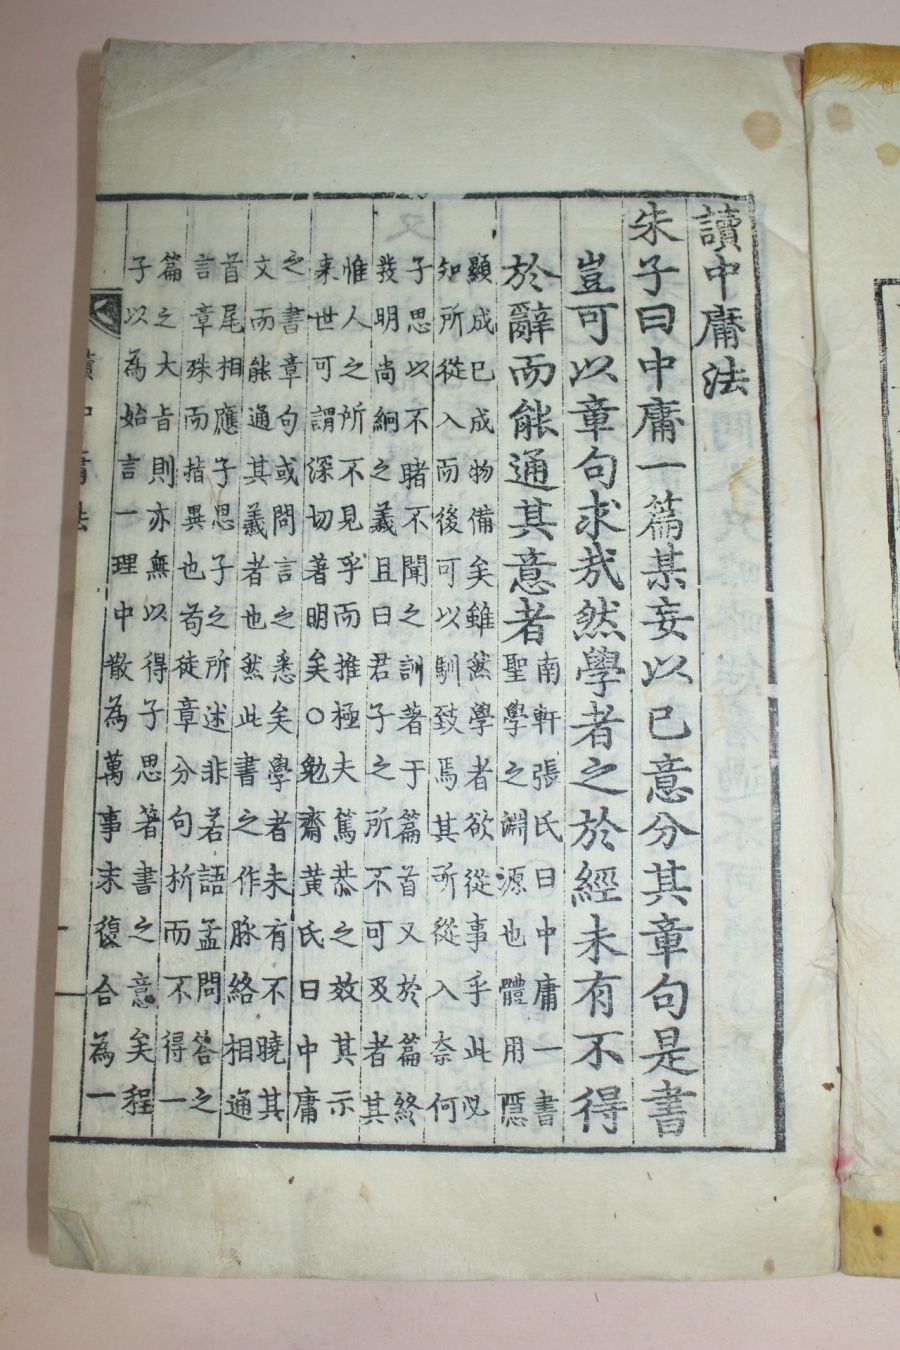 讀中庸法
朱子曰中庸一篇某妄以已意分其章句是書
豈可以章句求哉然學者之於經未有不得
於辭而能通其意者
南軒張氏曰中庸一書
聖學之淵源也體用隱
顯成已成物備矣雖然學者欲從事乎此必
知所從入而後可以馴致焉其所從入奈何
子思以不睹不聞之訓著于篇首又於篇終
發明尚絅之義且曰君子之所不可及者其
惟人之所不見乎而推極夫篤恭之效其示
来世可謂深切著明矣○勉齋黄氏曰中庸
之書章句或問言之悉矣學者未有不曉其
文而能通其義者也然此書之作脉絡相通
首尾相應子思子之所述非若語孟問答之
言章殊而指異也苟徒章分句析而不得一
篇之大旨則亦無以得子思著書之意矣程
子以為始言一理中散為萬事末復合為一
讀中庸法